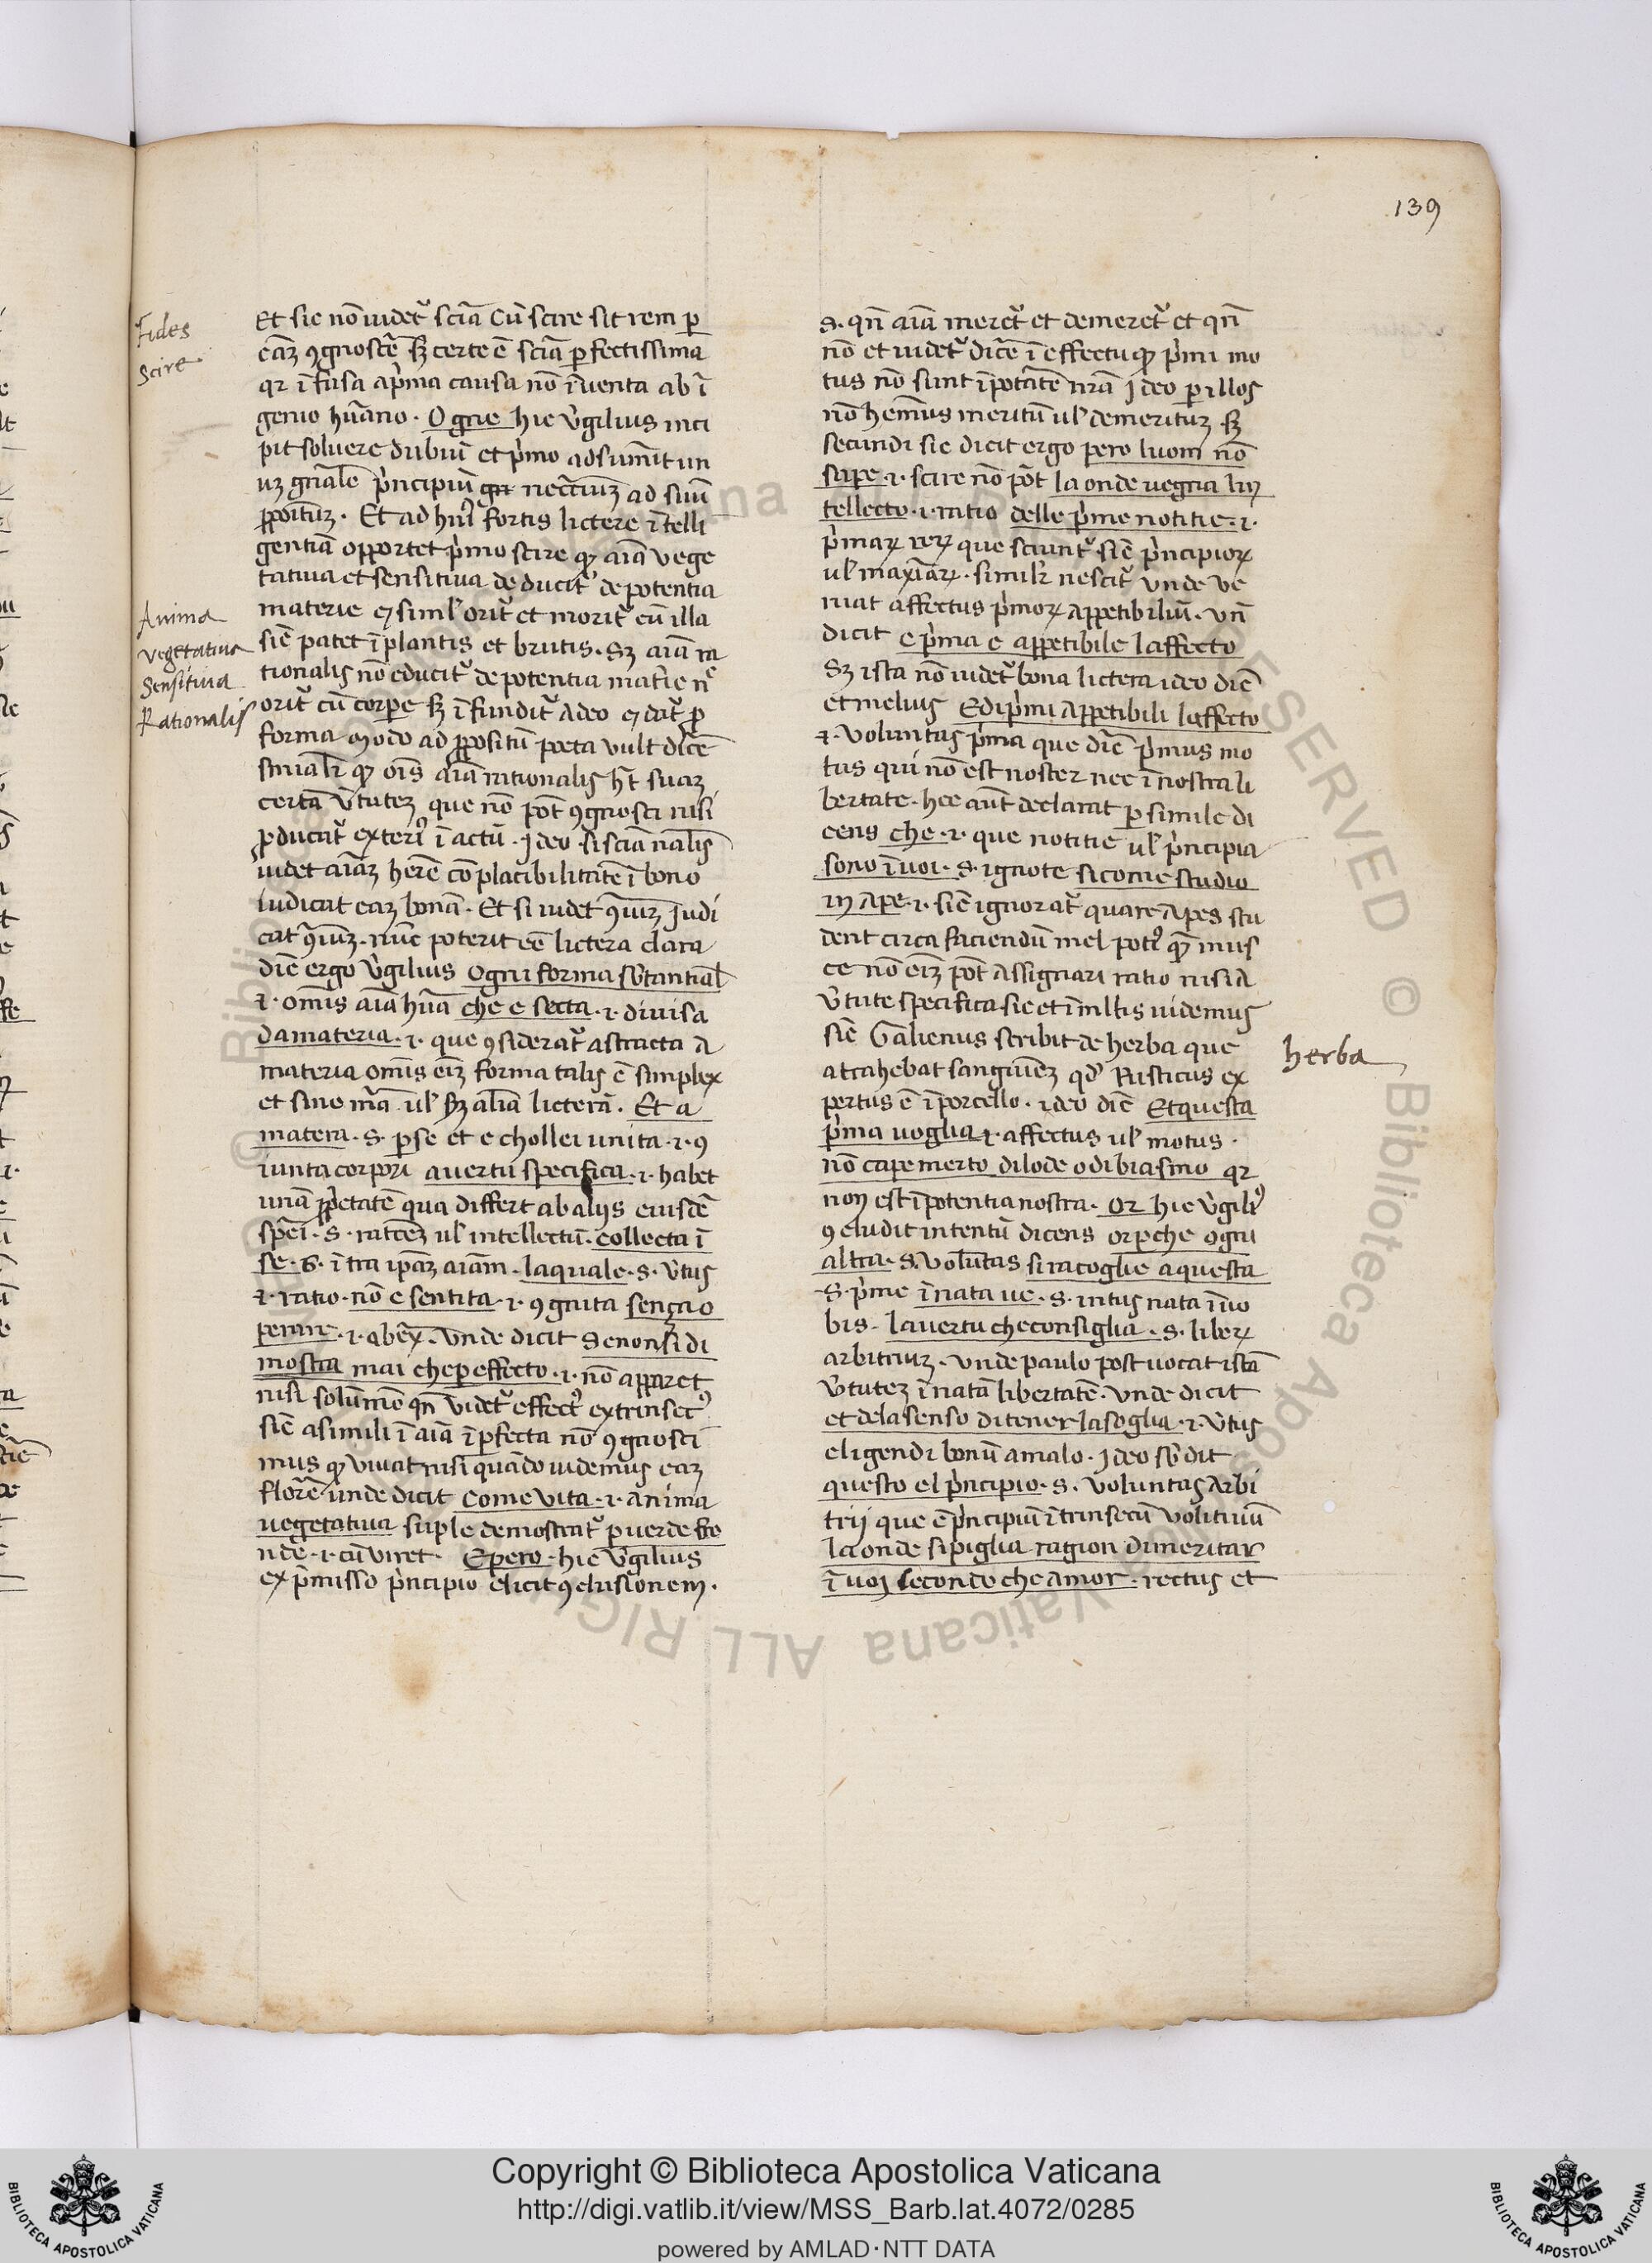 139
Fides
Scire
Et sic nō uidet᷑ sciā Cū scire sit rem p̱
cāz ꝯgnoscē sꝫ certe ē sciā p̱fectissima
qr ī fusa ap̓ma causa nō īuenta ab ī
genio hūano · O gne hic v̓gilius inci
pit soluere dubiū et p̓mo adsumit un
uz gn̄ale p̓ncipiū nec̄riuz ad suū
ꝓpoituz · Et ad hui᷒ fortis lictere ītelli
gentiā opportet p̓mo scire qꝫ aīa vege
tatiua et sensitiua de ducit᷑ de potentia
materie ⁊ siml̓ orit᷑ et morit᷑ cū illa
sic̄ patet ī plantis et brutis · Sꝫ aīa ra
tionalis nō educit᷑ de potentia mat̓ie n̄
orit᷑ cū corpe sꝫ ī fundit᷑ a deo ⁊ dat᷑ ꝓ
forma modo ad ꝓpositū poeta vult dicē
qꝫ oīs aīa rationalis h̄t suaz
certā v̓tutez que nō pōt ꝯgnosci nisi
ꝓducat᷑ exteri᷒ ī actū · Ideo si sciā nālis
uidet aīaz h̄ere cōplacibilitatē ī bono
iudicat eaz bonā · Et si uidet ꝯ̄iuz Judi
cat ꝯ̄iuz · nūc poterit eē lictera clara
dic̄ ergo v̓gilius Ogni forma sb̄tantial̓
·i· omīs aīa hūa che e secta ·i· diuisa
da materia ·i· que ꝯsiderat᷑ astracta a
materia omīs eīz forma talis ē simplex
et sine mā ul̓ sꝫ aliā licterā · Et a
matera · S · p̱se et e chollei unita ·i· ꝯ
iuncta corpori a uertu specifica ·i· habet
unā ꝓp̓etatē qua differt ab alijs eiusdē
spēi · S · rat̄cez ul̓ intellectū · collecta ī
se · S · ītra ip̄az aīam · laquale · S · v̓tus
·i· ratio · nō e sentita ·i· ꝯgnita sença o
perare ·i· absꝫ · Vnde dicit Se non si di
mostra mai che p̱ effecto ·i· nō apparet
nisi solūmō qn̄ videt᷑ effect᷒ extrinsec᷒
sic̄ a simili ī aīa īp̱fecta nō ꝯgnosci
mus qꝫ viuat nisi quādo uidemus eaz
florē unde dicit Come vita ·i· anima
uegetatiua suple demostrat᷑ p̱ uerde fro
nde ·i· cū viret · E pero · hic v̓gilius
ex p̓misso p̓ncipio elicit ꝯclusionem ·
Anima
vegetatiua
Sensitiua
Rationalis
S · qn̄ aīa meret᷑ et demeret᷑ et qn̄
nō et uidet᷑ dicē ī effectu qꝫ p̓mi mo
tus nō sunt ī potātē nrā Ideo p̱ illos
nō hemus meritū ul̓ demerituz sꝫ
secundi sic dicit ergo pero luom nō
sape ·i· scire nō pōt la onde uegna lin
tellecto ·i· ratio delle p̓me notitie ·i·
p̓maꝝ reꝝ que sciunt᷑ sic̄ p̓ncipioꝝ
ul̓ maxīaꝝ · similr̄ nescit᷑ vnde ve
niat affectus p̓moꝝ appetibiliū · vn̄
dicit e p̓ma e appetibile laffecto
Sꝫ ista nō uidet᷑ bona lictera ideo dic̄
et melius E di p̓mi appetibili laffecto
·i· voluntas p̓ma que dic̄ p̓mus mo
tus qui nō est noster nec ī nostra li
bertate · hec aūt declarat p̱ simile di
cens che ·i· que notitie ul̓ p̓ncipia
sono ī uoi · S · ignote si come studio
in ape ·i· sic̄ ignorat᷑ quare apes stu
dent circa faciendū mel poti᷒ qꝫ mus
ce nō eīz pōt assignari ratio nisi a
v̓tute specifica sic et ī mltis uidemus
sic̄ Galienus scribit de herba que
atrahebat sanguinez qd̓ Rusticus ex
pertus ē ī porcello · ideo dic̄ Et questa
p̓ma uoglia ·i· affectus ul̓ motus ·
nō cape merto di lode o di biasmo qr
non est ī potentia nostra · Or hic v̓gili᷒
ꝯcludit intentū dicens or p̱che ogni
altra · S · volūtas si racoglie a questa
· S · p̓me īnata ue · S · intus nata ī uo
bis · la uertu che consiglia · S · liberꝝ
arbitriuz · vnde paulo post uocat istā
v̓tutez īnatā libertatē · vnde dicit
et dela senso di tener la soglia ·i· v̓tus
eligendi bonū a malo · Ideo sb̓dit
questo el p̓ncipio · S · voluntas arbi
trij que ē p̓ncipiū ītrinsecū volitiuū
la onde si piglia ragion di meritar
ī uoi seconde che amor · rectus et
herba
Copyright © Biblioteca Apostolica Vaticana
http://digi.vatlib.it/view/MSS_Barb.lat.4072/0285
powered by AMLAD·NTT DATA